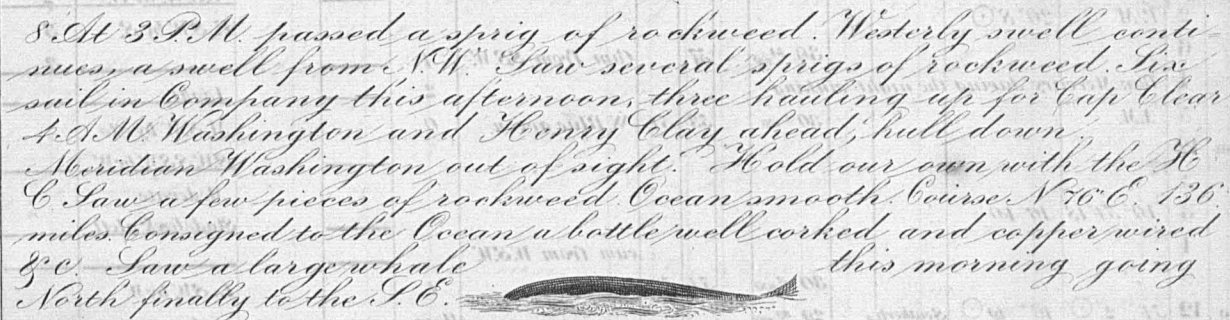 8. At 3 P.M. passed a sprig of rockweed. Westerly swell conti-
nues, a swell from N.W. Saw several sprigs of rockweed. Six
sail in Company this afternoon, three hauling up for Cap Clear
4 A.M. Washington and Henry Clay ahead, hull down.
Meridian Washington out of sight. Hold our own with the H
C. Saw a few pieces of rockweed. Ocean smooth. Course N 76° E. 136'
miles. Consigned to the Ocean a bottle well corked and copper wired
&c. Saw a large whale this morning going
North finally to the S.E.